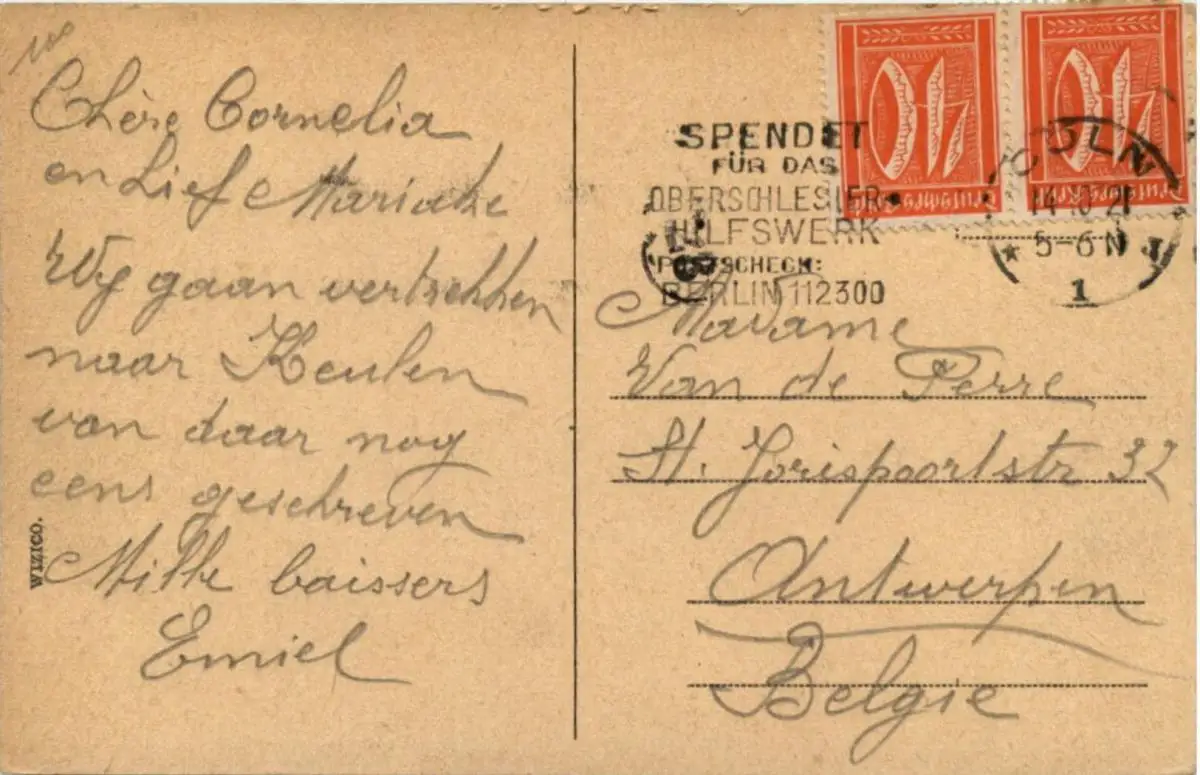 100
Chère Cornelia
en Lief Mariake
Wy gaan vertrekken
naar Keulen
van daar nog
eens geschreven
Mille baissers
Emiel
WIZICO.
40
40
Deutsches Reich
Deutsches Reich
SPENDET
FÜR DAS
OBERSCHLESIER-
HILFSWERK
POSTSCHECK:
BERLIN 112300
CÖLN
14.10.21
5-6 N
1
Madame
Van de Perre
St. Jorispoortstr 32
Antwerpen
Belgie